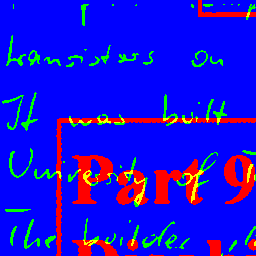 transistors on
It was built
University of
Part 9
The builder